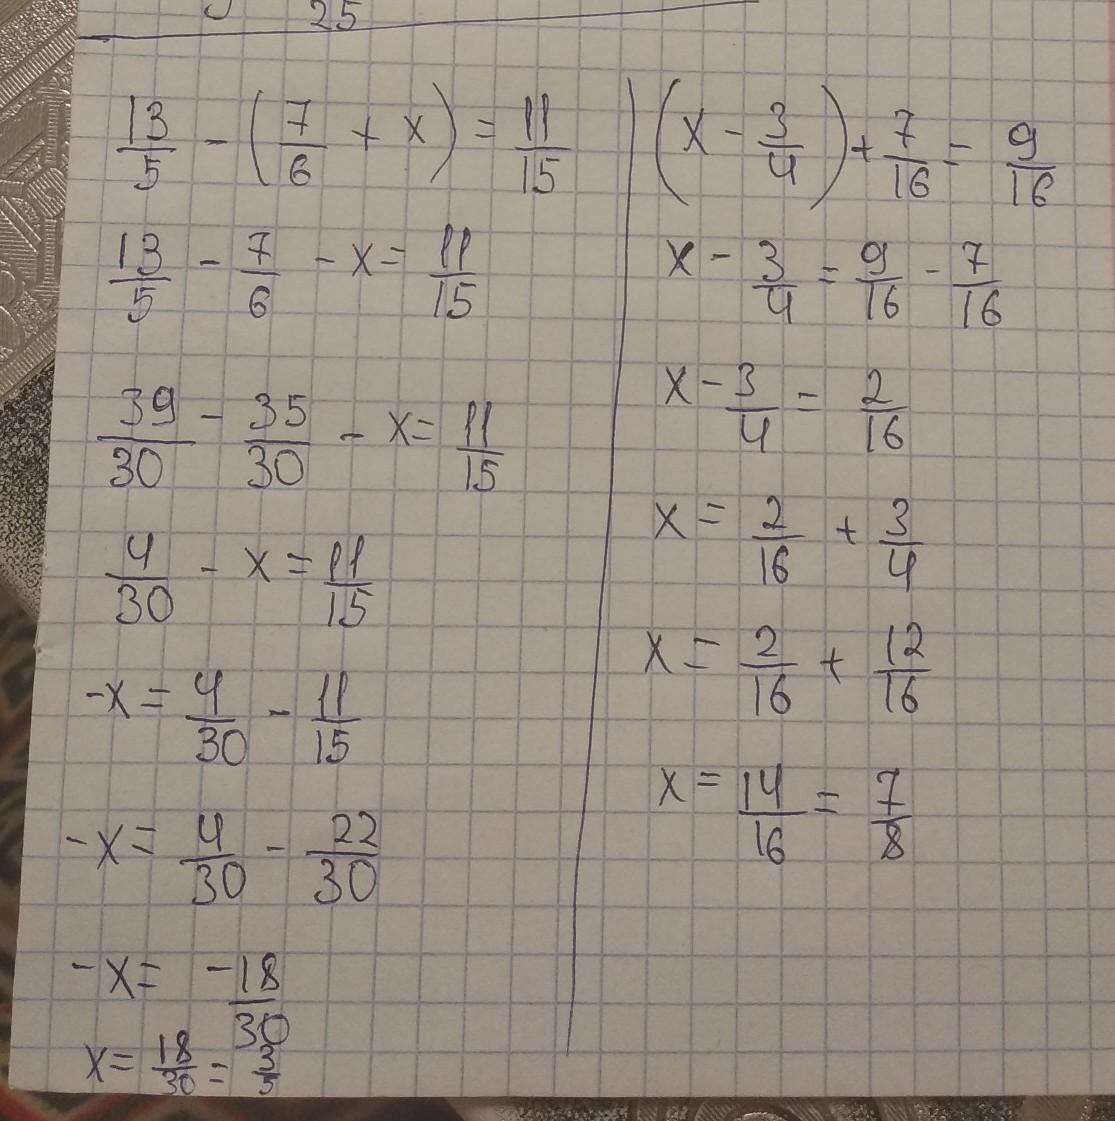 25
13/5 - (7/6 + x) = 11/15
13/5 - 7/6 - x = 11/15
39/30 - 35/30 - x = 11/15
4/30 - x = 11/15
-x = 4/30 - 11/15
-x = 4/30 - 22/30
-x = -18/30
x = 18/30 = 3/5
(x - 3/4) + 7/16 = 9/16
x - 3/4 = 9/16 - 7/16
x - 3/4 = 2/16
x = 2/16 + 3/4
x = 2/16 + 12/16
x = 14/16 = 7/8